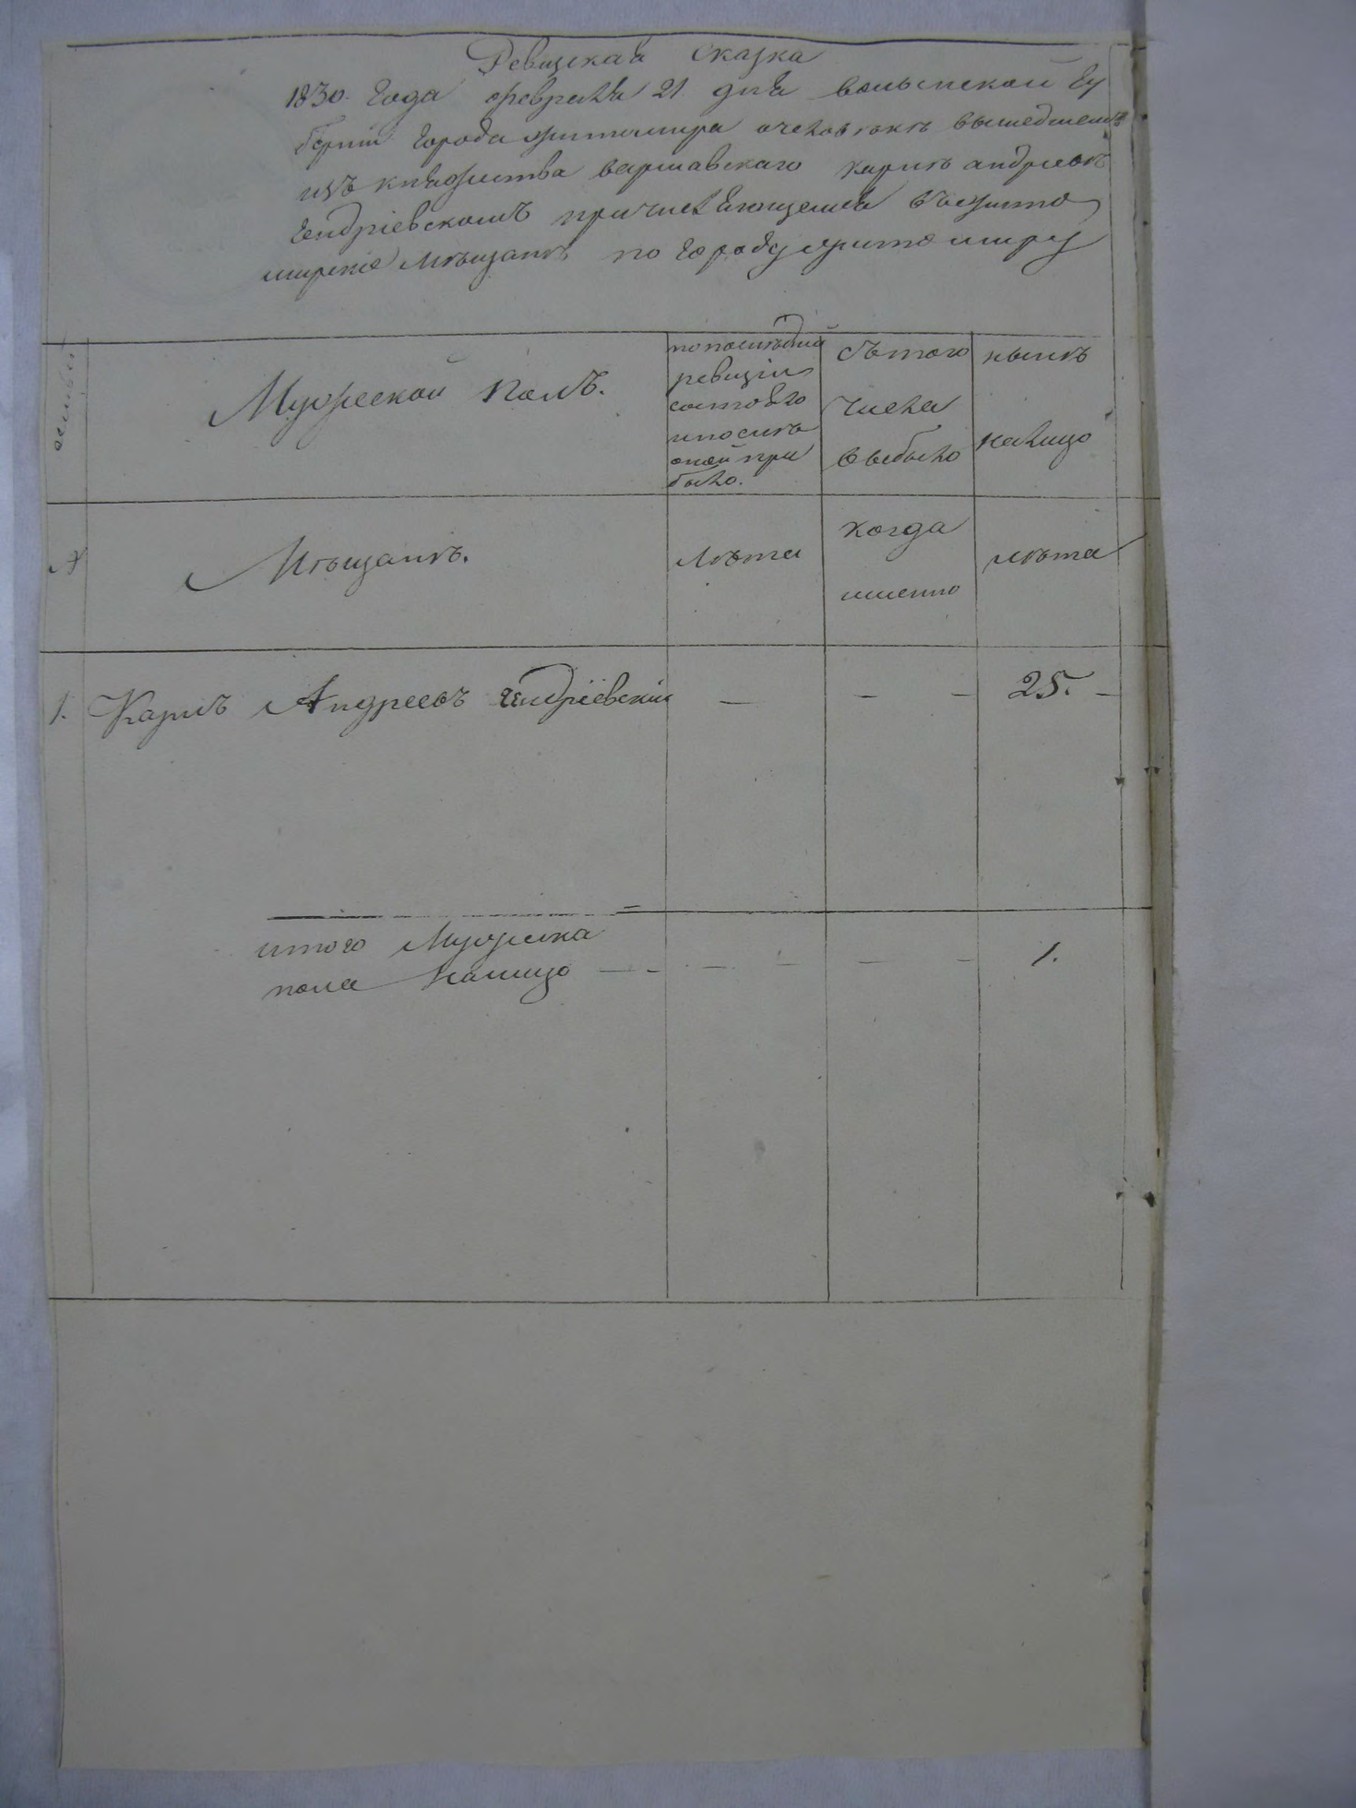 Ревизская сказка
1830. Года февраля 21 дня волынской Гу
берніи Города житомира очеловѣкѣ вышедшемъ
изъ княжества варшавскаго карлѣ андрѣевѣ
Ендріевскомъ причисляющемся вжито
мирскіе мѣщане по Городу житомиру
семьи
Мужеской полъ.
попослѣдней
ревизіи
состояло
ипослѣ
оной при
было.
Съ того
числа
выбыло
нынѣ
налицо
№
Мѣщанѣ.
лѣта
когда
именно
лѣта
1. Карлъ Андреевъ Ендріевскій — — — 25. —
итого Мужеска
пола налицо — — — — — — 1.